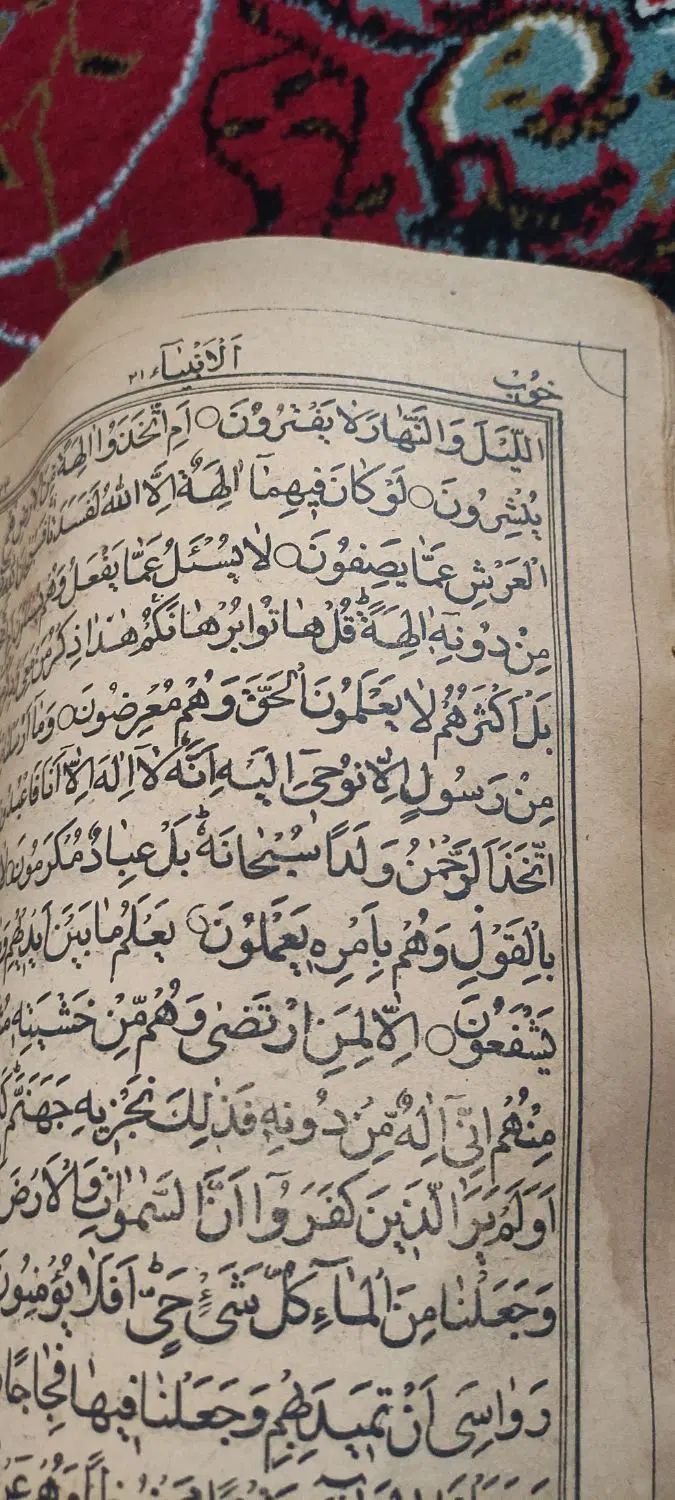 اَلْاَنْبِيَآء ٢١
خوب
الَّيْلَ وَالنَّهَارَ لَا يَفْتُرُوْنَ ۝ اَمِ اتَّخَذُوْا اٰلِهَةً مِّنَ الْاَرْضِ هُمْ
يُنْشِرُوْنَ ۝ لَوْ كَانَ فِيْهِمَآ اٰلِهَةٌ اِلَّا اللّٰهُ لَفَسَدَتَا
الْعَرْشِ عَمَّا يَصِفُوْنَ ۝ لَا يُسْئَلُ عَمَّا يَفْعَلُ وَهُمْ
مِنْ دُوْنِهٖٓ اٰلِهَةً ؕ قُلْ هَاتُوْا بُرْهَانَكُمْ هٰذَا ذِكْرُ مَنْ مَّعِيَ
بَلْ اَكْثَرُهُمْ لَا يَعْلَمُوْنَ الْحَقَّ وَهُمْ مُّعْرِضُوْنَ ۝ وَمَا اَرْسَلْنَا
مِنْ رَسُوْلٍ اِلَّا نُوْحِيْ اِلَيْهِ اَنَّهٗ لَآ اِلٰهَ اِلَّا اَنَا فَاعْبُدُوْنِ
اتَّخَذَ الرَّحْمٰنُ وَلَدًا سُبْحَانَهٗ ؕ بَلْ عِبَادٌ مُّكْرَمُوْنَ ۝
بِالْقَوْلِ وَهُمْ بِاَمْرِهٖ يَعْمَلُوْنَ ۝ يَعْلَمُ مَا بَيْنَ اَيْدِيْهِمْ
يَشْفَعُوْنَ ۝ اِلَّا لِمَنِ ارْتَضٰى وَهُمْ مِّنْ خَشْيَتِهٖ
مِنْهُمْ اِنِّيْٓ اِلٰهٌ مِّنْ دُوْنِهٖ فَذٰلِكَ نَجْزِيْهِ جَهَنَّمَ
اَوَلَمْ يَرَ الَّذِيْنَ كَفَرُوْٓا اَنَّ السَّمٰوَاتِ وَالْاَرْضَ
وَجَعَلْنَا مِنَ الْمَآءِ كُلَّ شَيْءٍ حَيٍّ ؕ اَفَلَا يُؤْمِنُوْنَ
رَوَاسِيَ اَنْ تَمِيْدَ بِهِمْ وَجَعَلْنَا فِيْهَا فِجَاجًا